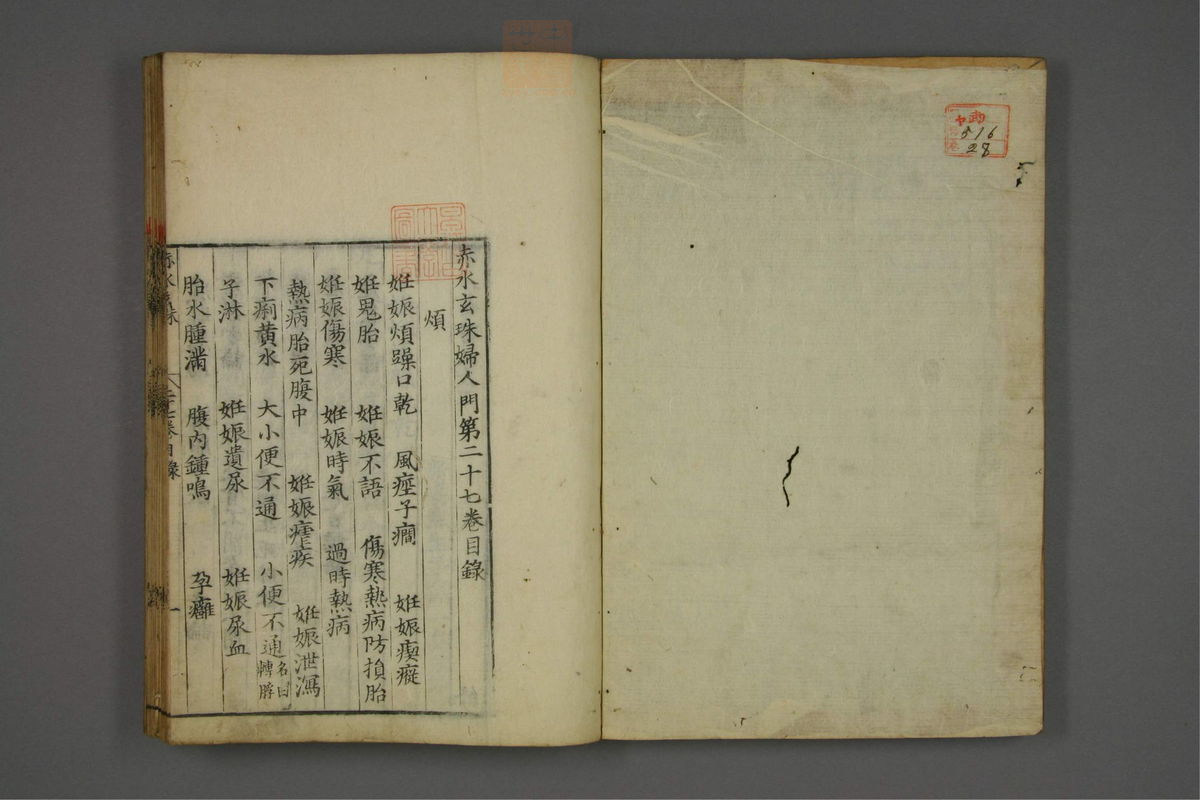 內
5 16
28
赤水玄珠婦人門第二十七卷目錄
煩
姙娠煩躁口乾 風痙子癇 姙娠瘈瘲
姙鬼胎 姙娠不語 傷寒熱病防損胎
姙娠傷寒 姙娠時氣 過時熱病
熱病胎死腹中 姙娠瘧疾 姙娠泄瀉
下痢黃水 大小便不通 小便不通 名曰轉脬
子淋 姙娠遺尿 姙娠尿血
胎水腫滿 腹內鍾鳴 孕癰
赤水玄珠 二十七卷目錄 一